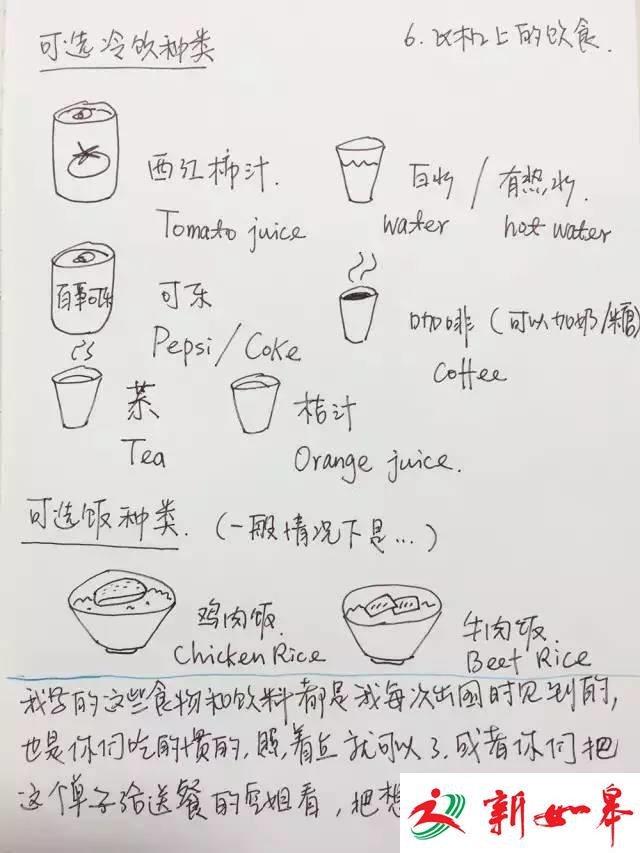 可选冷饮种类
6. 飞机上的饮食.
西红柿汁.
Tomato juice
白水 / 有热水.
water
hot water
百事可乐
可乐
Pepsi/Coke
咖啡 (可以加奶/糖)
Coffee
茶
Tea
桔汁
Orange juice.
可选饭种类. (一般情况下是...)
鸡肉饭.
Chicken Rice
牛肉饭.
Beef Rice
我写的这些食物和饮料都是我每次出国时见到的,
也是你们吃的惯的, 照着点就可以了. 或者你们把
这个单子给送餐的空姐看, 把想
新如皋